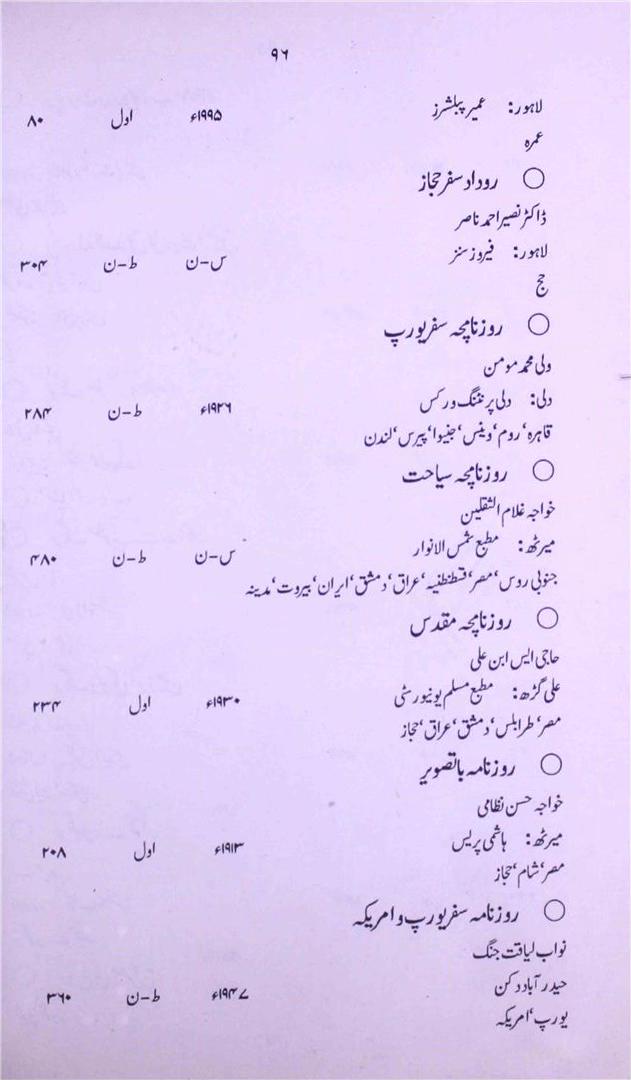 ۹۶
لاہور: عمیر پبلشرز ۱۹۹۵ء اول ۸۰
عمرہ
○ روداد سفر حجاز
ڈاکٹر نصیر احمد ناصر
لاہور: فیروز سنز س-ن ط-ن ۳۰۴
حج
○ روزنامچہ سفر یورپ
ولی محمد مومن
دلی: دلی پرنٹنگ ورکس ۱۹۲۶ء ط-ن ۲۸۴
قاہرہ‘ روم‘ وینس‘ جنیوا‘ پیرس‘ لندن
○ روزنامچہ سیاحت
خواجہ غلام الثقلین
میرٹھ: مطبع شمس الانوار س-ن ط-ن ۴۸۰
جنوبی روس‘ مصر‘ قسطنطنیہ‘ عراق‘ دمشق‘ ایران‘ بیروت‘ مدینہ
○ روزنامچہ مقدس
حاجی ایس ابن علی
علی گڑھ: مطبع مسلم یونیورسٹی ۱۹۳۰ء اول ۲۳۴
مصر‘ طرابلس‘ دمشق‘ عراق‘ حجاز
○ روزنامہ باتصویر
خواجہ حسن نظامی
میرٹھ: ہاشمی پریس ۱۹۱۳ء اول ۲۰۸
مصر‘ شام‘ حجاز
○ روزنامہ سفر یورپ و امریکہ
نواب لیاقت جنگ
حیدر آباد دکن ۱۹۴۷ء ط-ن ۳۶۰
یورپ‘ امریکہ